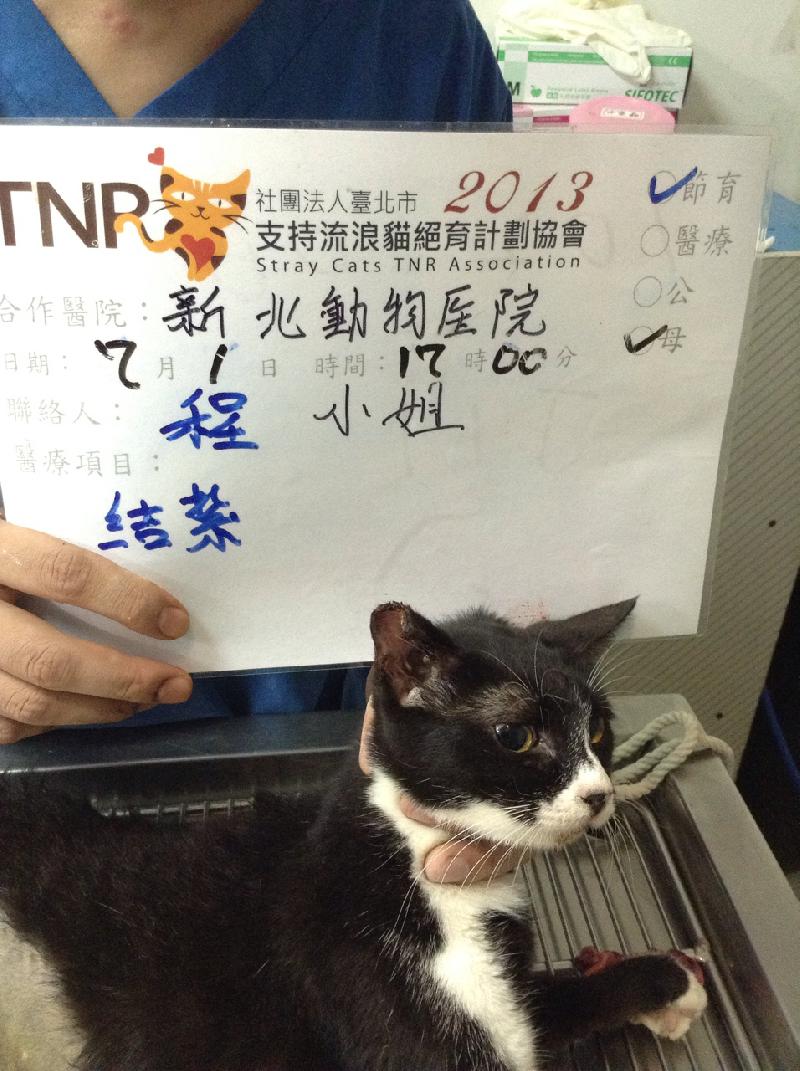 M
SIFOTEC
TNR
社團法人臺北市 2013
支持流浪貓絕育計劃協會
Stray Cats TNR Association
✓節育
○醫療
○公
✓母
合作醫院：新北動物医院
日期：7月1日 時間：17時00分
聯絡人：程 小姐
醫療項目：
結紮